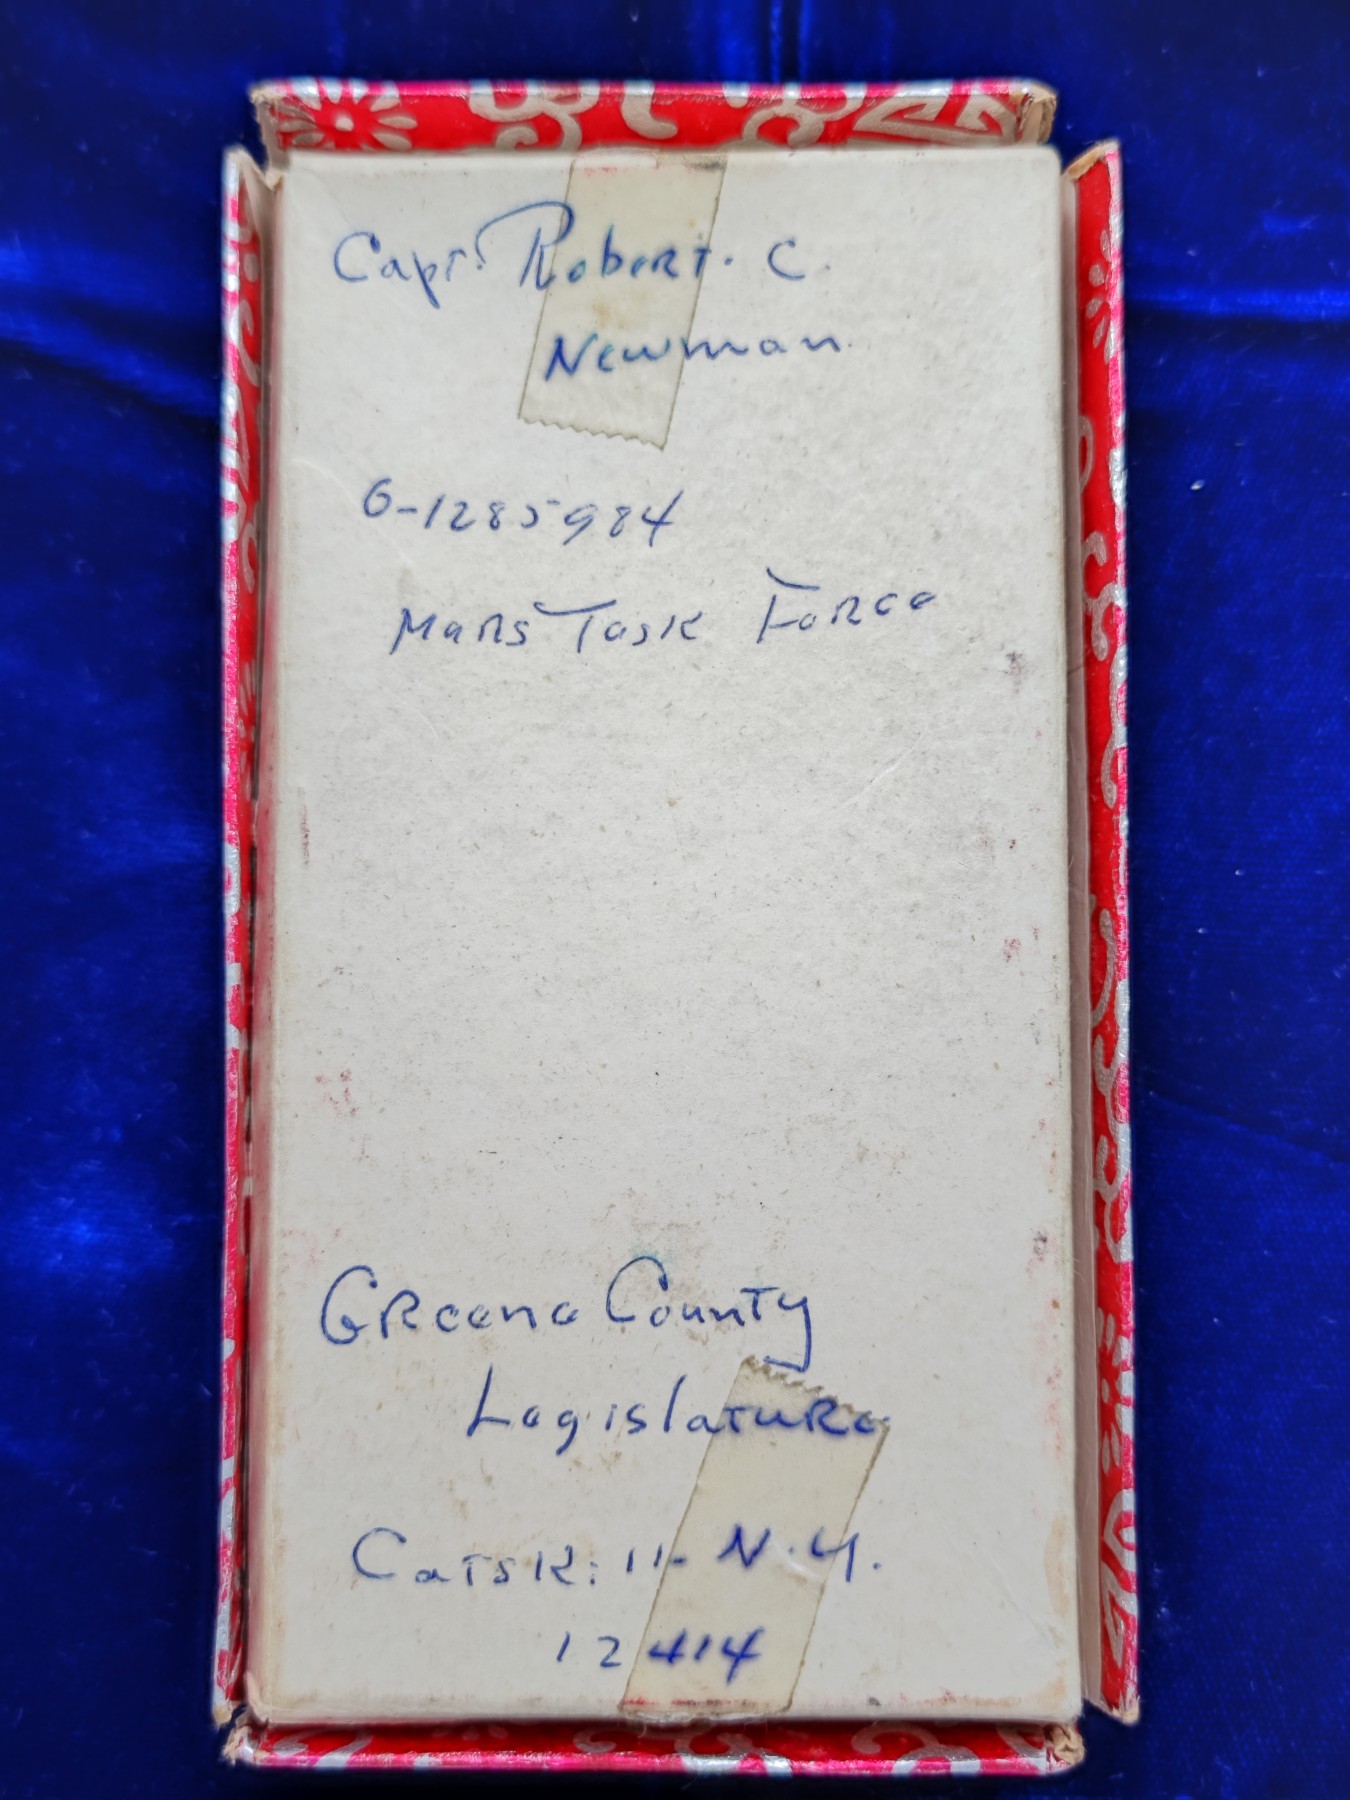 Capt. Robert. C.
Newman.
O-1285984
Mars Task Force
Greene County
Legislature
Catskill- N.Y.
12414